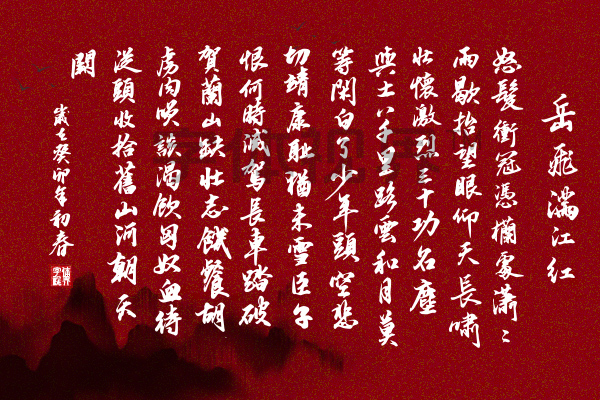 岳飛滿江红
怒髮衝冠憑欄處瀟〻
雨歇抬望眼仰天長嘯
壯懷激烈三十功名塵
與土八千里路雲和月莫
等閑白了少年頭空悲
切靖康耻猶未雪臣子
恨何時滅駕長車踏破
賀蘭山缺壯志饑餐胡
虜肉笑談渴飲匈奴血待
從頭收拾舊山河朝天
闕
歲在癸卯年初春